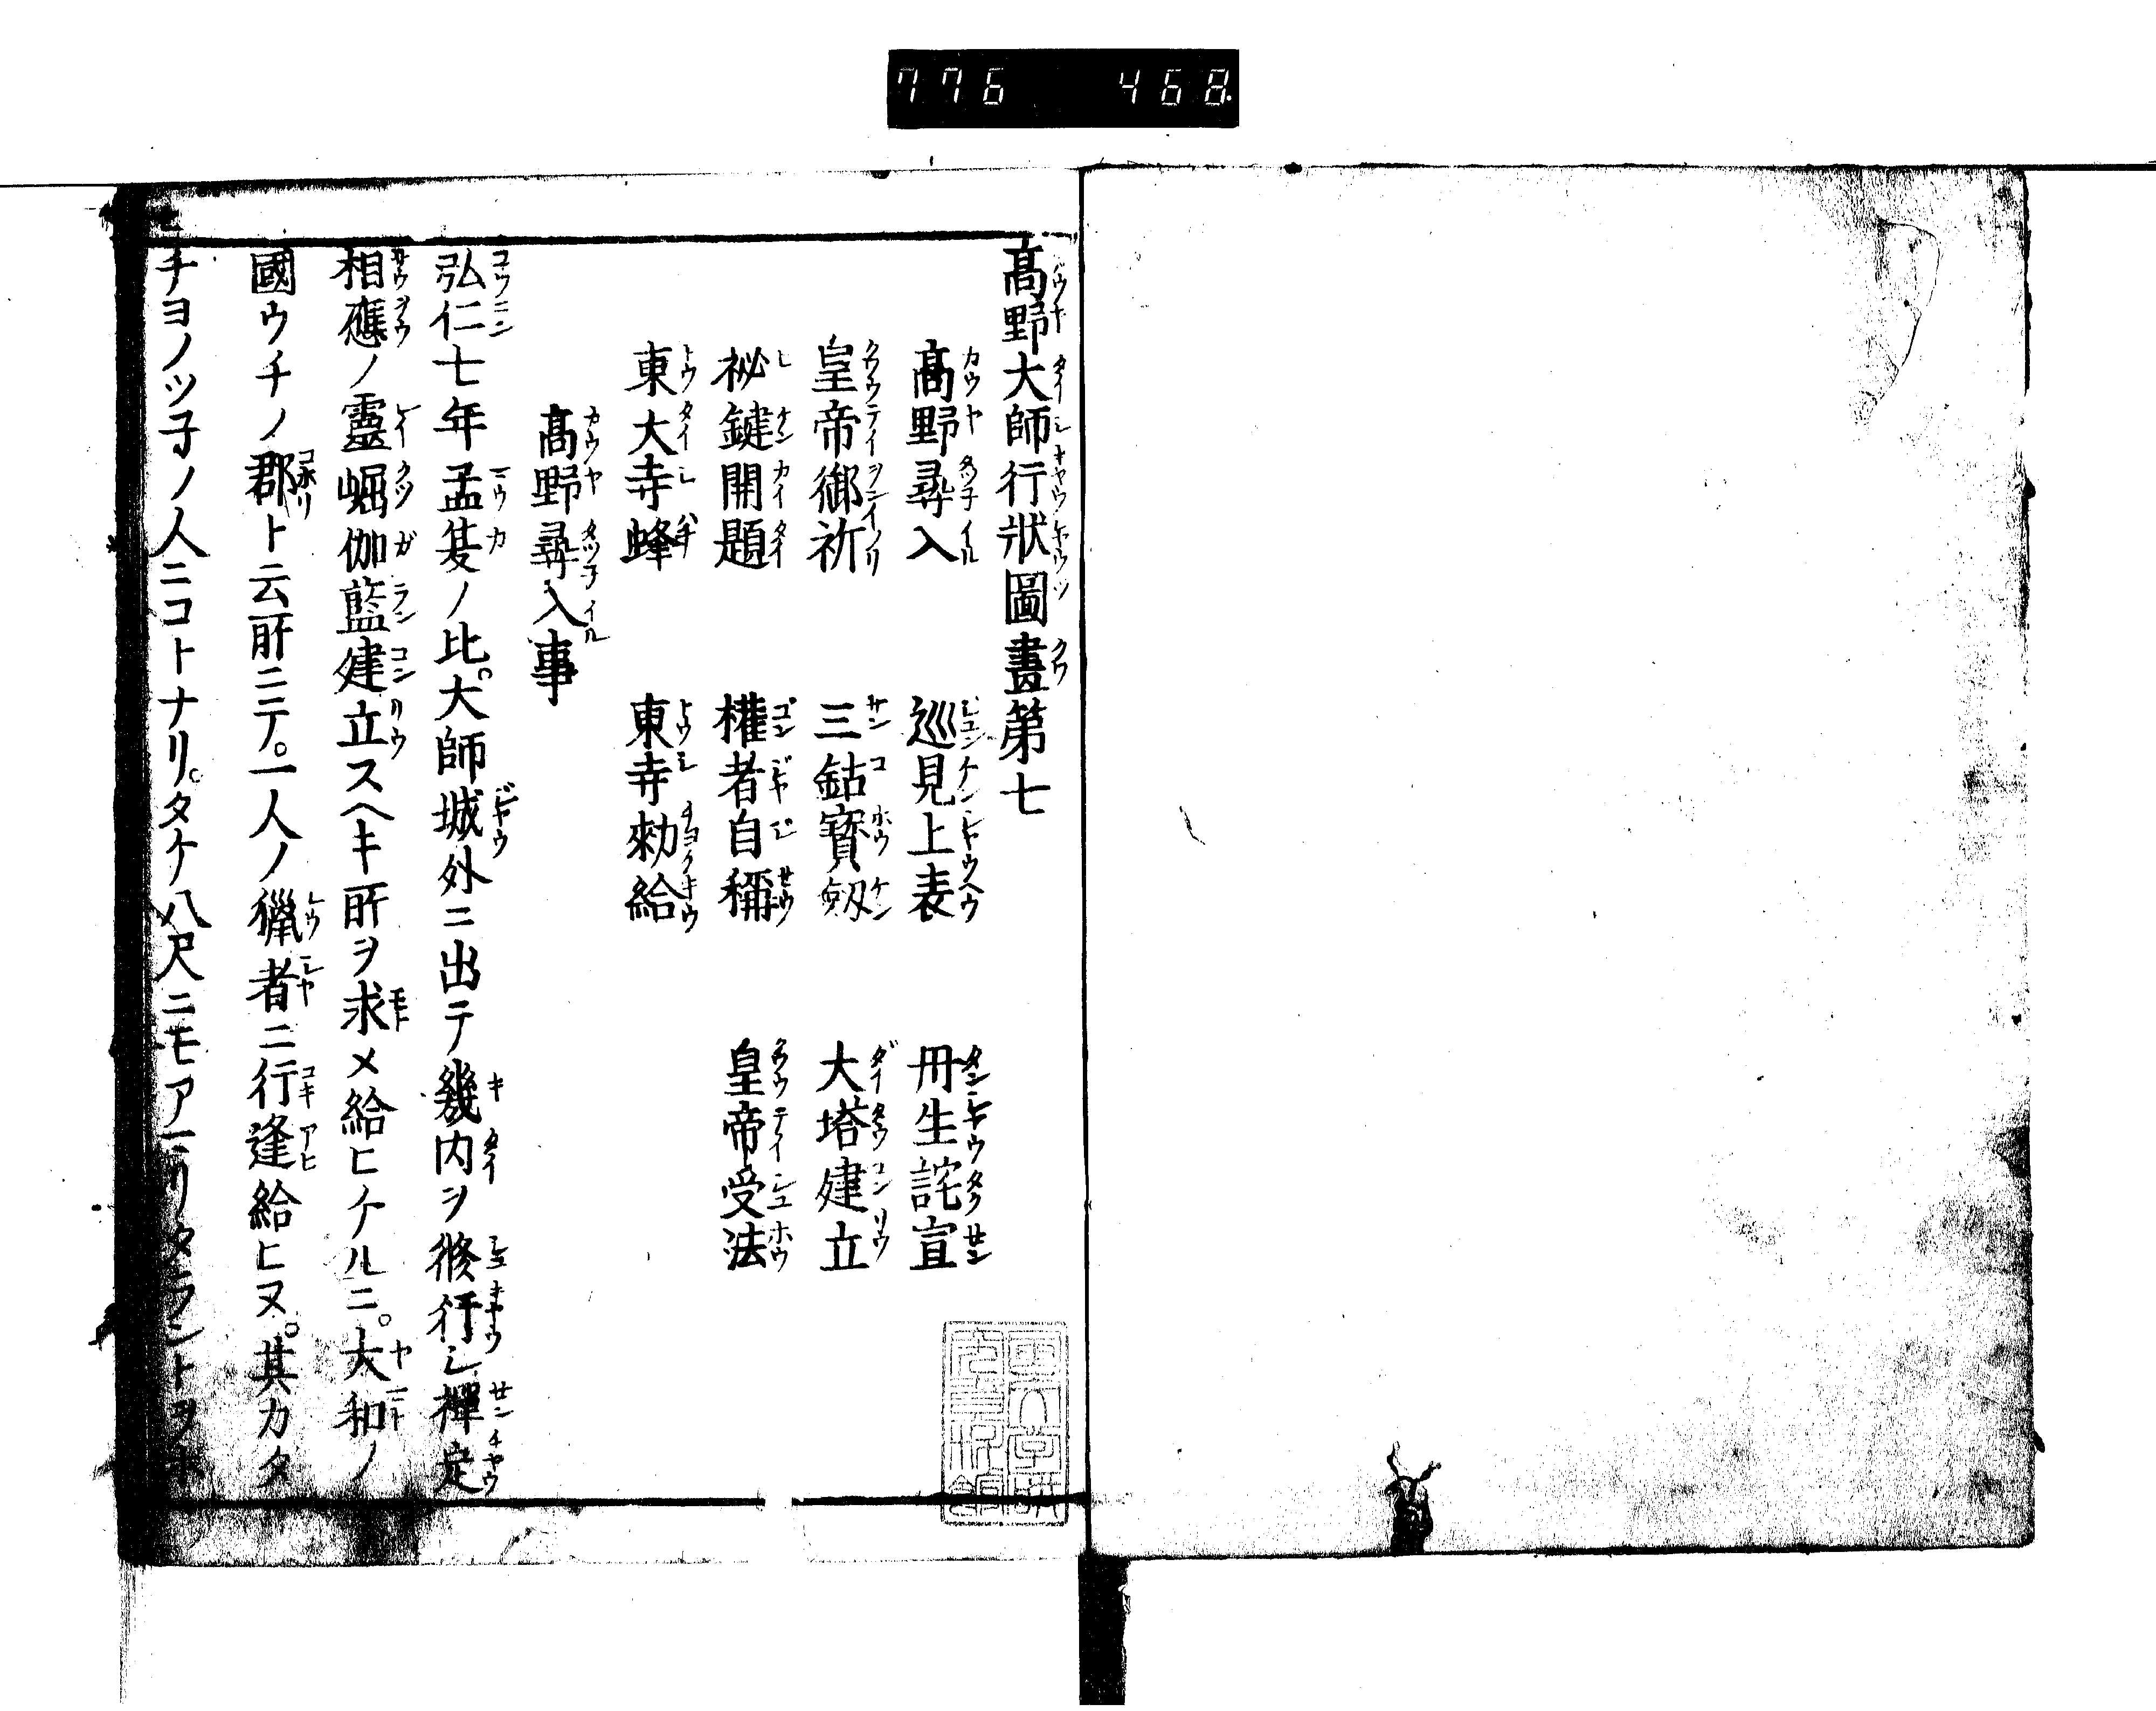 776 468
高野大師行狀圖畫第七
高野尋入 巡見上表 丹生託宣
皇帝御祈 三鈷寳剱 大塔建立
祕鍵開題 權者自稱 皇帝受法
東大寺蜂 東寺勅給
高野尋入事
弘仁七年孟夏ノ比。大師城外ニ出テ幾内ヲ修行シ禪定
相應ノ靈崛伽藍建立スヘキ所ヲ求メ給ヒケルニ。大和ノ
國ウチノ郡ト云所ニテ。一人ノ獵者ニ行逢給ヒヌ。其カタ
チヨノツ子ノ人ニコトナリ。タケ八尺ニモアマリタラントヲホ